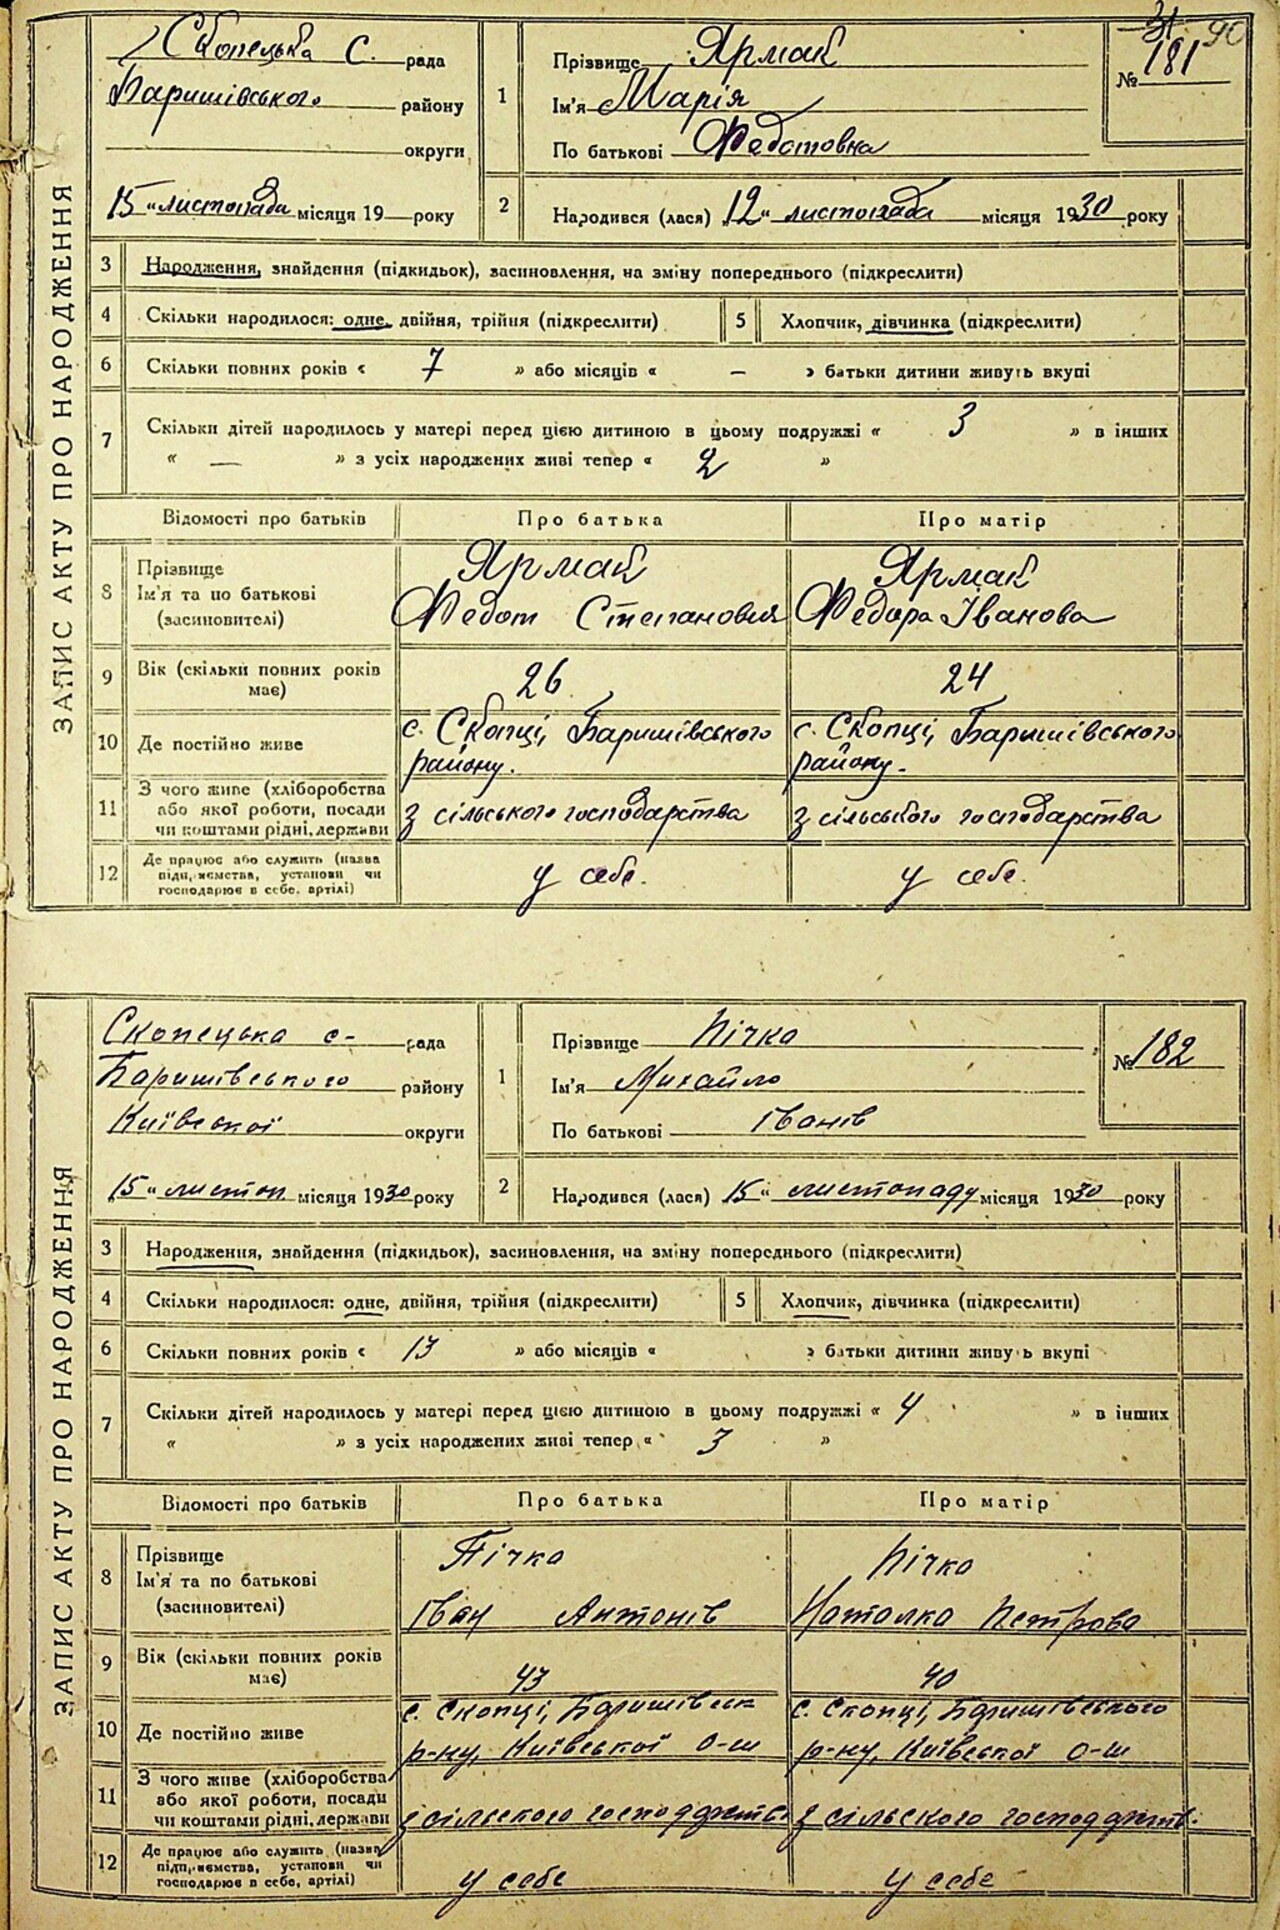 90
ЗАПИС АКТУ ПРО НАРОДЖЕННЯ
Скопецька с. рада
Баришівського району
округи
15 „ листопада місяця 19 року
1
Прізвище Ярмак
Ім'я Марія
По батькові Федотовна
№ 181
2
Народився (лася) 12 „ листопада місяця 1930 року
3 Народження, знайдення (підкидьок), засиновлення, на зміну попереднього (підкреслити)
4 Скільки народилося: одне, двійня, трійня (підкреслити) 5 Хлопчик, дівчинка (підкреслити)
6 Скільки повних років « 7 » або місяців « – » батьки дитини живуть вкупі
7 Скільки дітей народилось у матері перед цією дитиною в цьому подружжі « 3 » в інших
« — » з усіх народжених живі тепер « 2 »
Відомості про батьків Про батька Про матір
8 Прізвище Ім'я та по батькові (засиновителі)
Ярмак Федот Степанович
Ярмак Федора Іванова
9 Вік (скільки повних років має) 26 24
10 Де постійно живе
с. Скопці, Баришівського району.
с. Скопці, Баришівського району.
11 З чого живе (хліборобства або якої роботи, посади чи коштами рідні, держави
з сільського господарства
з сільського господарства
12 Де працює або служить (назва підприємства, установи чи господарює в себе, артілі)
у себе.
у себе.
ЗАПИС АКТУ ПРО НАРОДЖЕННЯ
Скопецька с- рада
Баришівського району
Київської округи
15 „ листоп місяця 1930 року
1
Прізвище Пічка
Ім'я Михайло
По батькові Іванів
№ 182
2
Народився (лася) 15 „ листопаду місяця 1930 року
3 Народження, знайдення (підкидьок), засиновлення, на зміну попереднього (підкреслити)
4 Скільки народилося: одне, двійня, трійня (підкреслити) 5 Хлопчик, дівчинка (підкреслити)
6 Скільки повних років « 13 » або місяців « » батьки дитини живуть вкупі
7 Скільки дітей народилось у матері перед цією дитиною в цьому подружжі « 4 » в інших
« » з усіх народжених живі тепер « 3 »
Відомості про батьків Про батька Про матір
8 Прізвище Ім'я та по батькові (засиновителі)
Пічка Іван Антонів
Пічка Наталка Петрова
9 Вік (скільки повних років має) 43 40
10 Де постійно живе
с. Скопці, Баришівськ р-ну, Київської о-ги
с. Скопці, Баришівського р-ну, Київської о-ги
11 З чого живе (хліборобства або якої роботи, посади чи коштами рідні, держави
з сільського господарств
з сільського господарств.
12 Де працює або служить (назва підприємства, установи чи господарює в себе, артілі)
у себе
у себе